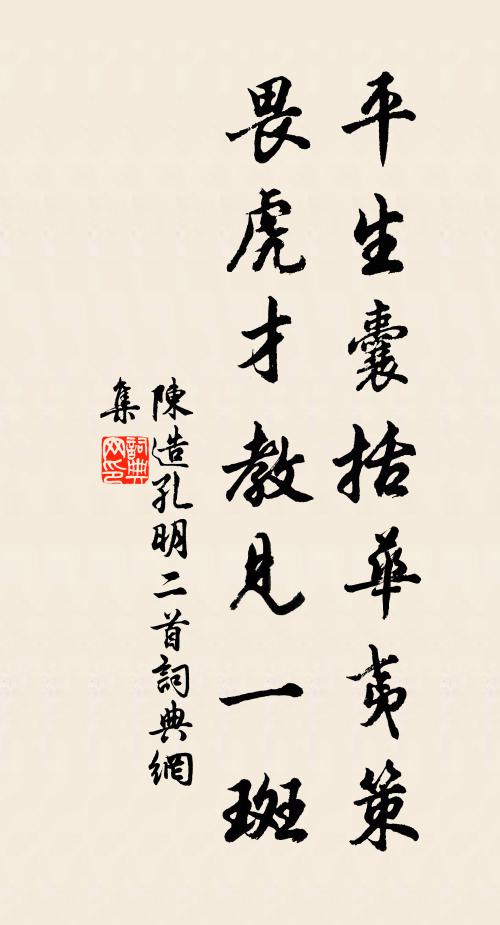 平生囊括華夷策
畏虎才教見一斑
陳造孔明二首詞典網
集
詞典网印